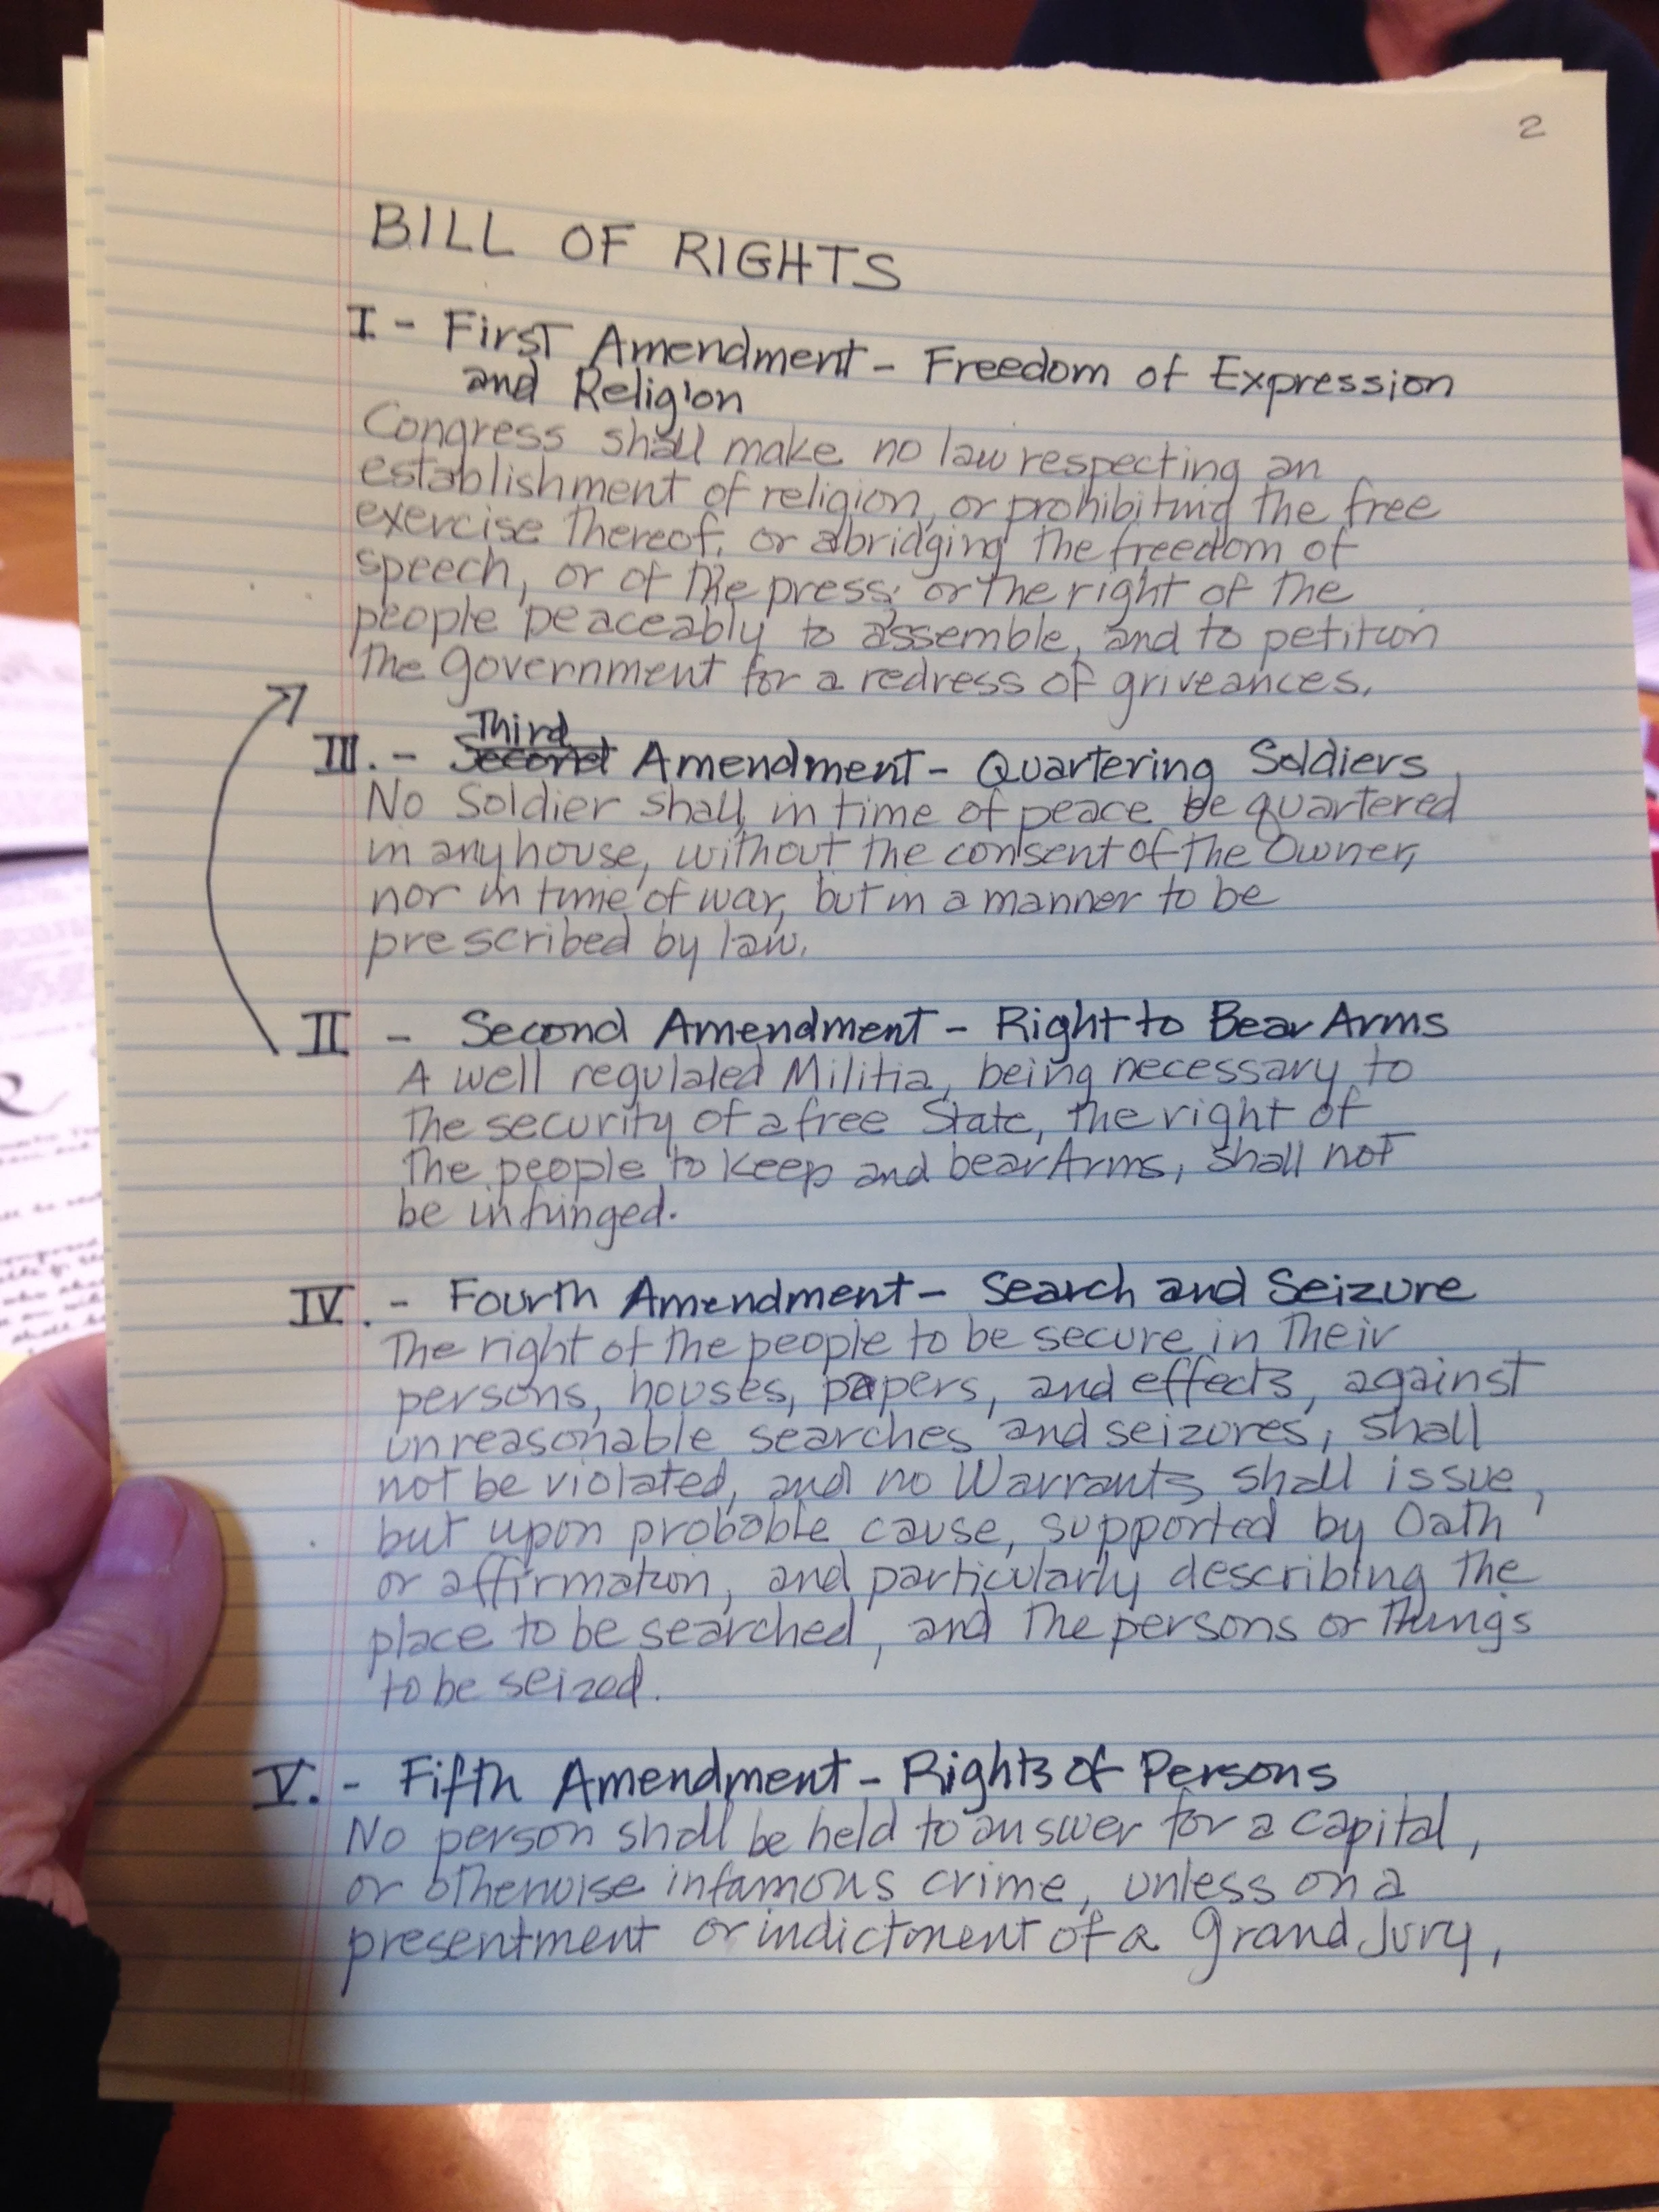 2
BILL OF RIGHTS
I - First Amendment - Freedom of Expression
and Religion
Congress shall make no law respecting an
establishment of religion, or prohibiting the free
exercise thereof; or abridging the freedom of
speech, or of the press; or the right of the
people peaceably to assemble, and to petition
the government for a redress of griveances.
Third
III. - Second Amendment - Quartering Soldiers
No Soldier shall, in time of peace be quartered
in any house, without the consent of the Owner,
nor in time of war, but in a manner to be
prescribed by law.
II - Second Amendment - Right to Bear Arms
A well regulated Militia, being necessary to
the security of a free State, the right of
the people to keep and bear Arms, shall not
be infringed.
IV. - Fourth Amendment - Search and Seizure
The right of the people to be secure in their
persons, houses, papers, and effects, against
unreasonable searches and seizures, shall
not be violated, and no Warrants shall issue,
but upon probable cause, supported by Oath
or affirmation, and particularly describing the
place to be searched, and the persons or things
to be seized.
V. - Fifth Amendment - Rights of Persons
No person shall be held to answer for a capital,
or otherwise infamous crime, unless on a
presentment or indictment of a Grand Jury,